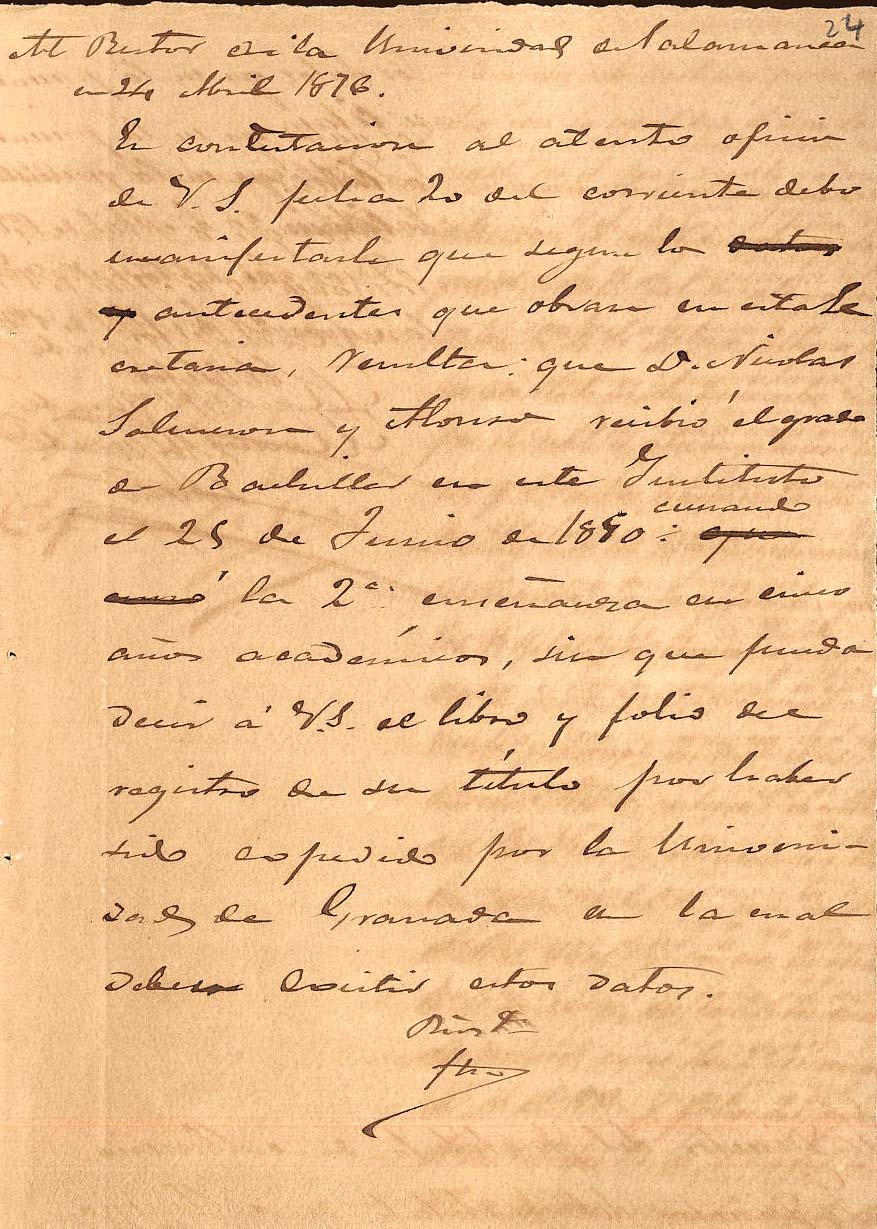 24
Al Rector de la Universidad de Salamanca
en 24 Abril 1876.
En contestacion al atento oficio
de V. S. fecha 20 del corriente debo
manifestarle que segun lo datos
y antecedentes que obran en esta Se
cretaria, resulta: que D. Nicolas
Salmeron y Alonso recibió el grado
de Bachiller en este Instituto
cursando
el 25 de Junio de 1850: que
cursó la 2ª enseñanza en cinco
años académicos, sin que pueda
decir á V.S. el libro y folio del
registro de su título por haber
sido expedido por la Universi-
dad de Granada en la cual
deben existir estos datos.